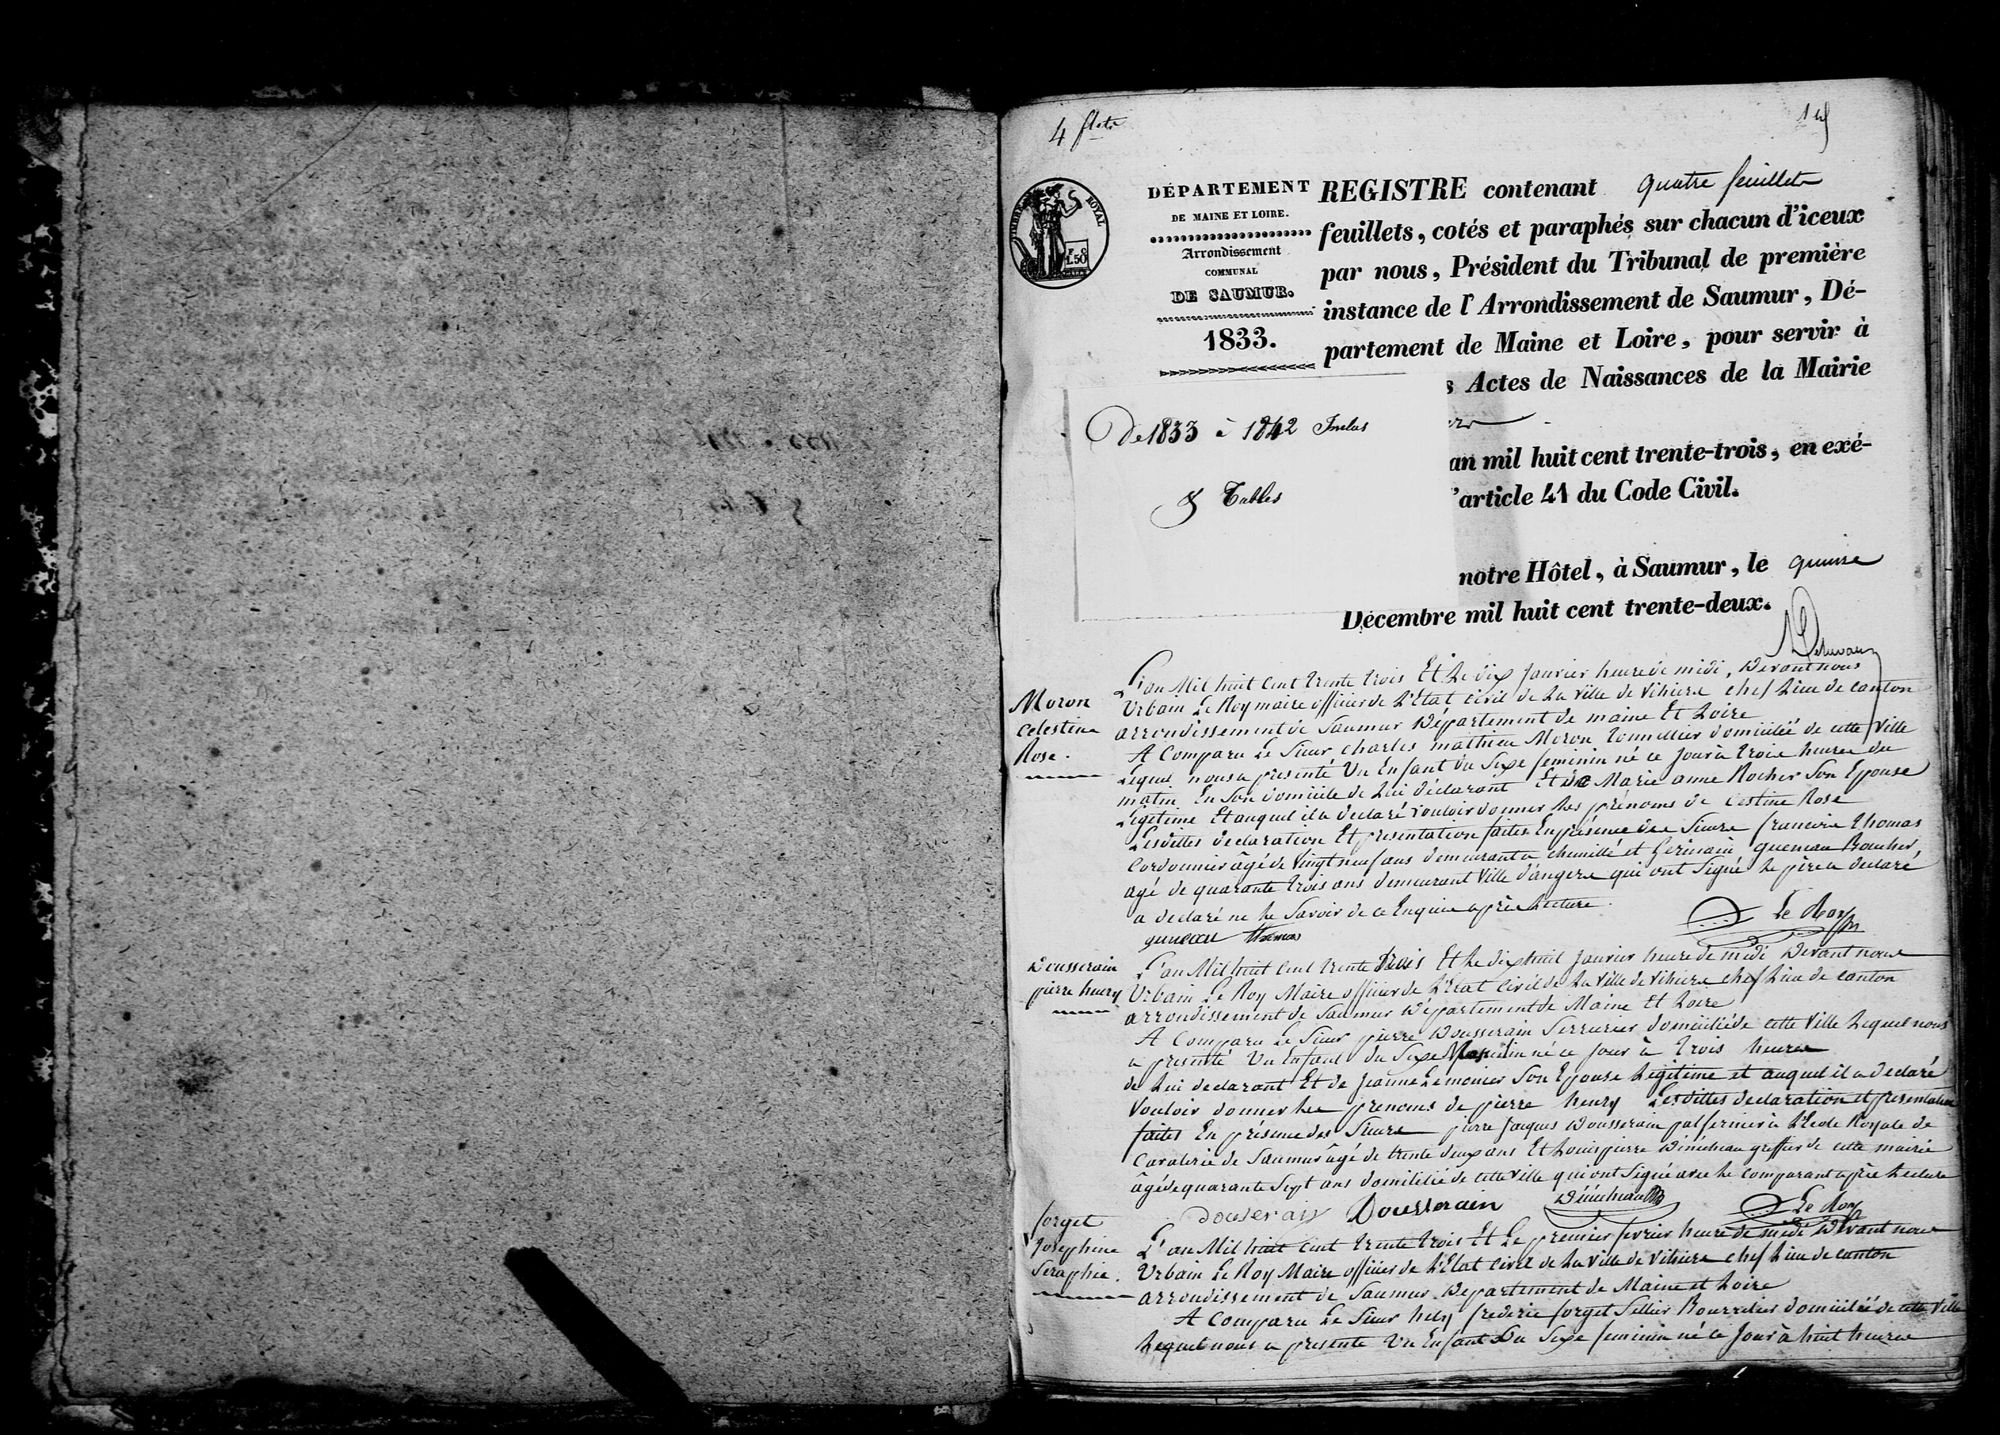 4 flets
1er
TIMBRE ROYAL
DÉPARTEMENT
DE MAINE ET LOIRE.
Arrondissement
COMMUNAL
DE SAUMUR.
1833.
REGISTRE contenant quatre feuillets
feuillets, cotés et paraphés sur chacun d'iceux
par nous, Président du Tribunal de première
instance de l'Arrondissement de Saumur, Dé-
partement de Maine et Loire, pour servir à
s Actes de Naissances de la Mairie
an mil huit cent trente-trois, en exé-
'article 41 du Code Civil.
notre Hôtel, à Saumur, le quinze
Décembre mil huit cent trente-deux.
De 1833 à 1842 Inclus
& Tables
Moron
Celestine
Rose.
L'an Mil huit cent trente trois Et Le dix Janvier heure de midi, Devant nous
Urbain Le Roy maire officier de L'Etat civil de La ville de vihiers chef Lieu de canton
arrondissement de Saumur Département de maine Et Loire
A Comparu Le Sieur charles mathieu Moron tonnellier domicilié de cette ville
Lequel nous a presenté Un Enfant du Sexe feminin né ce Jour à trois heures du
matin En Son domicile de Lui déclarant Et de Marie anne Rocher Son Epouse
Legitime Et auquel il a declaré vouloir donner Les prénoms de Cestine Rose
Lesdittes declaration Et presentation faites En présence des Sieurs francois thomas
Cordonnier agé de vingt neuf ans demeurant a chemillé et Germain queneau Boucher
agé de quarante trois ans demeurant Ville d'angers qui ont Signé Le père a declaré
a declaré ne Le Savoir de ce Enquis après Lecture.
queneau thomas Le Roy
Dousserain
pierre henry
L'an Mil huit cent trente trois Et Le dix huit Janvier heure de midi Devant nous
Urbain Le Roy Maire officier de L'Etat civil de La ville de vihiers chef Lieu de canton
arrondissement de Saumur Département de Maine Et Loire
A Comparu Le Sieur pierre Dousserain Serrurier domicilié de cette ville Lequel nous
a presenté Un Enfant du Sexe Masculin né ce Jour à trois heures
de Lui declarant Et de Jeanne Lemonier Son Epouse Legitime et auquel il a declaré
Vouloir donner Les prenoms de pierre henry Lesdittes declaration et presentation
faites En présence des Sieurs pierre Jacques Dousserain palfernier à L'Ecole Royale de
Cavalerie de Saumur âgé de trente deux ans Et Louis pierre Dénécheau greffier de cette mairie
âgé de quarante Sept ans domicilié de cette ville qui ont Signé avec Le comparant après Lecture
Dousserain Dénécheau Le Roy
forget
Josephine
Seraphie.
L'an Mil huit cent trente trois Et Le premier fevrier heure de midi Devant nous
Urbain Le Roy Maire officier de L'Etat civil de La ville de vihiers chef Lieu de canton
arrondissement de Saumur Département de Maine et Loire
A Comparu Le Sieur frederic forget Sellier Bourrelier domicilié de cette ville
Lequel nous a presenté Un Enfant Du Sexe feminin né ce Jour à huit heures